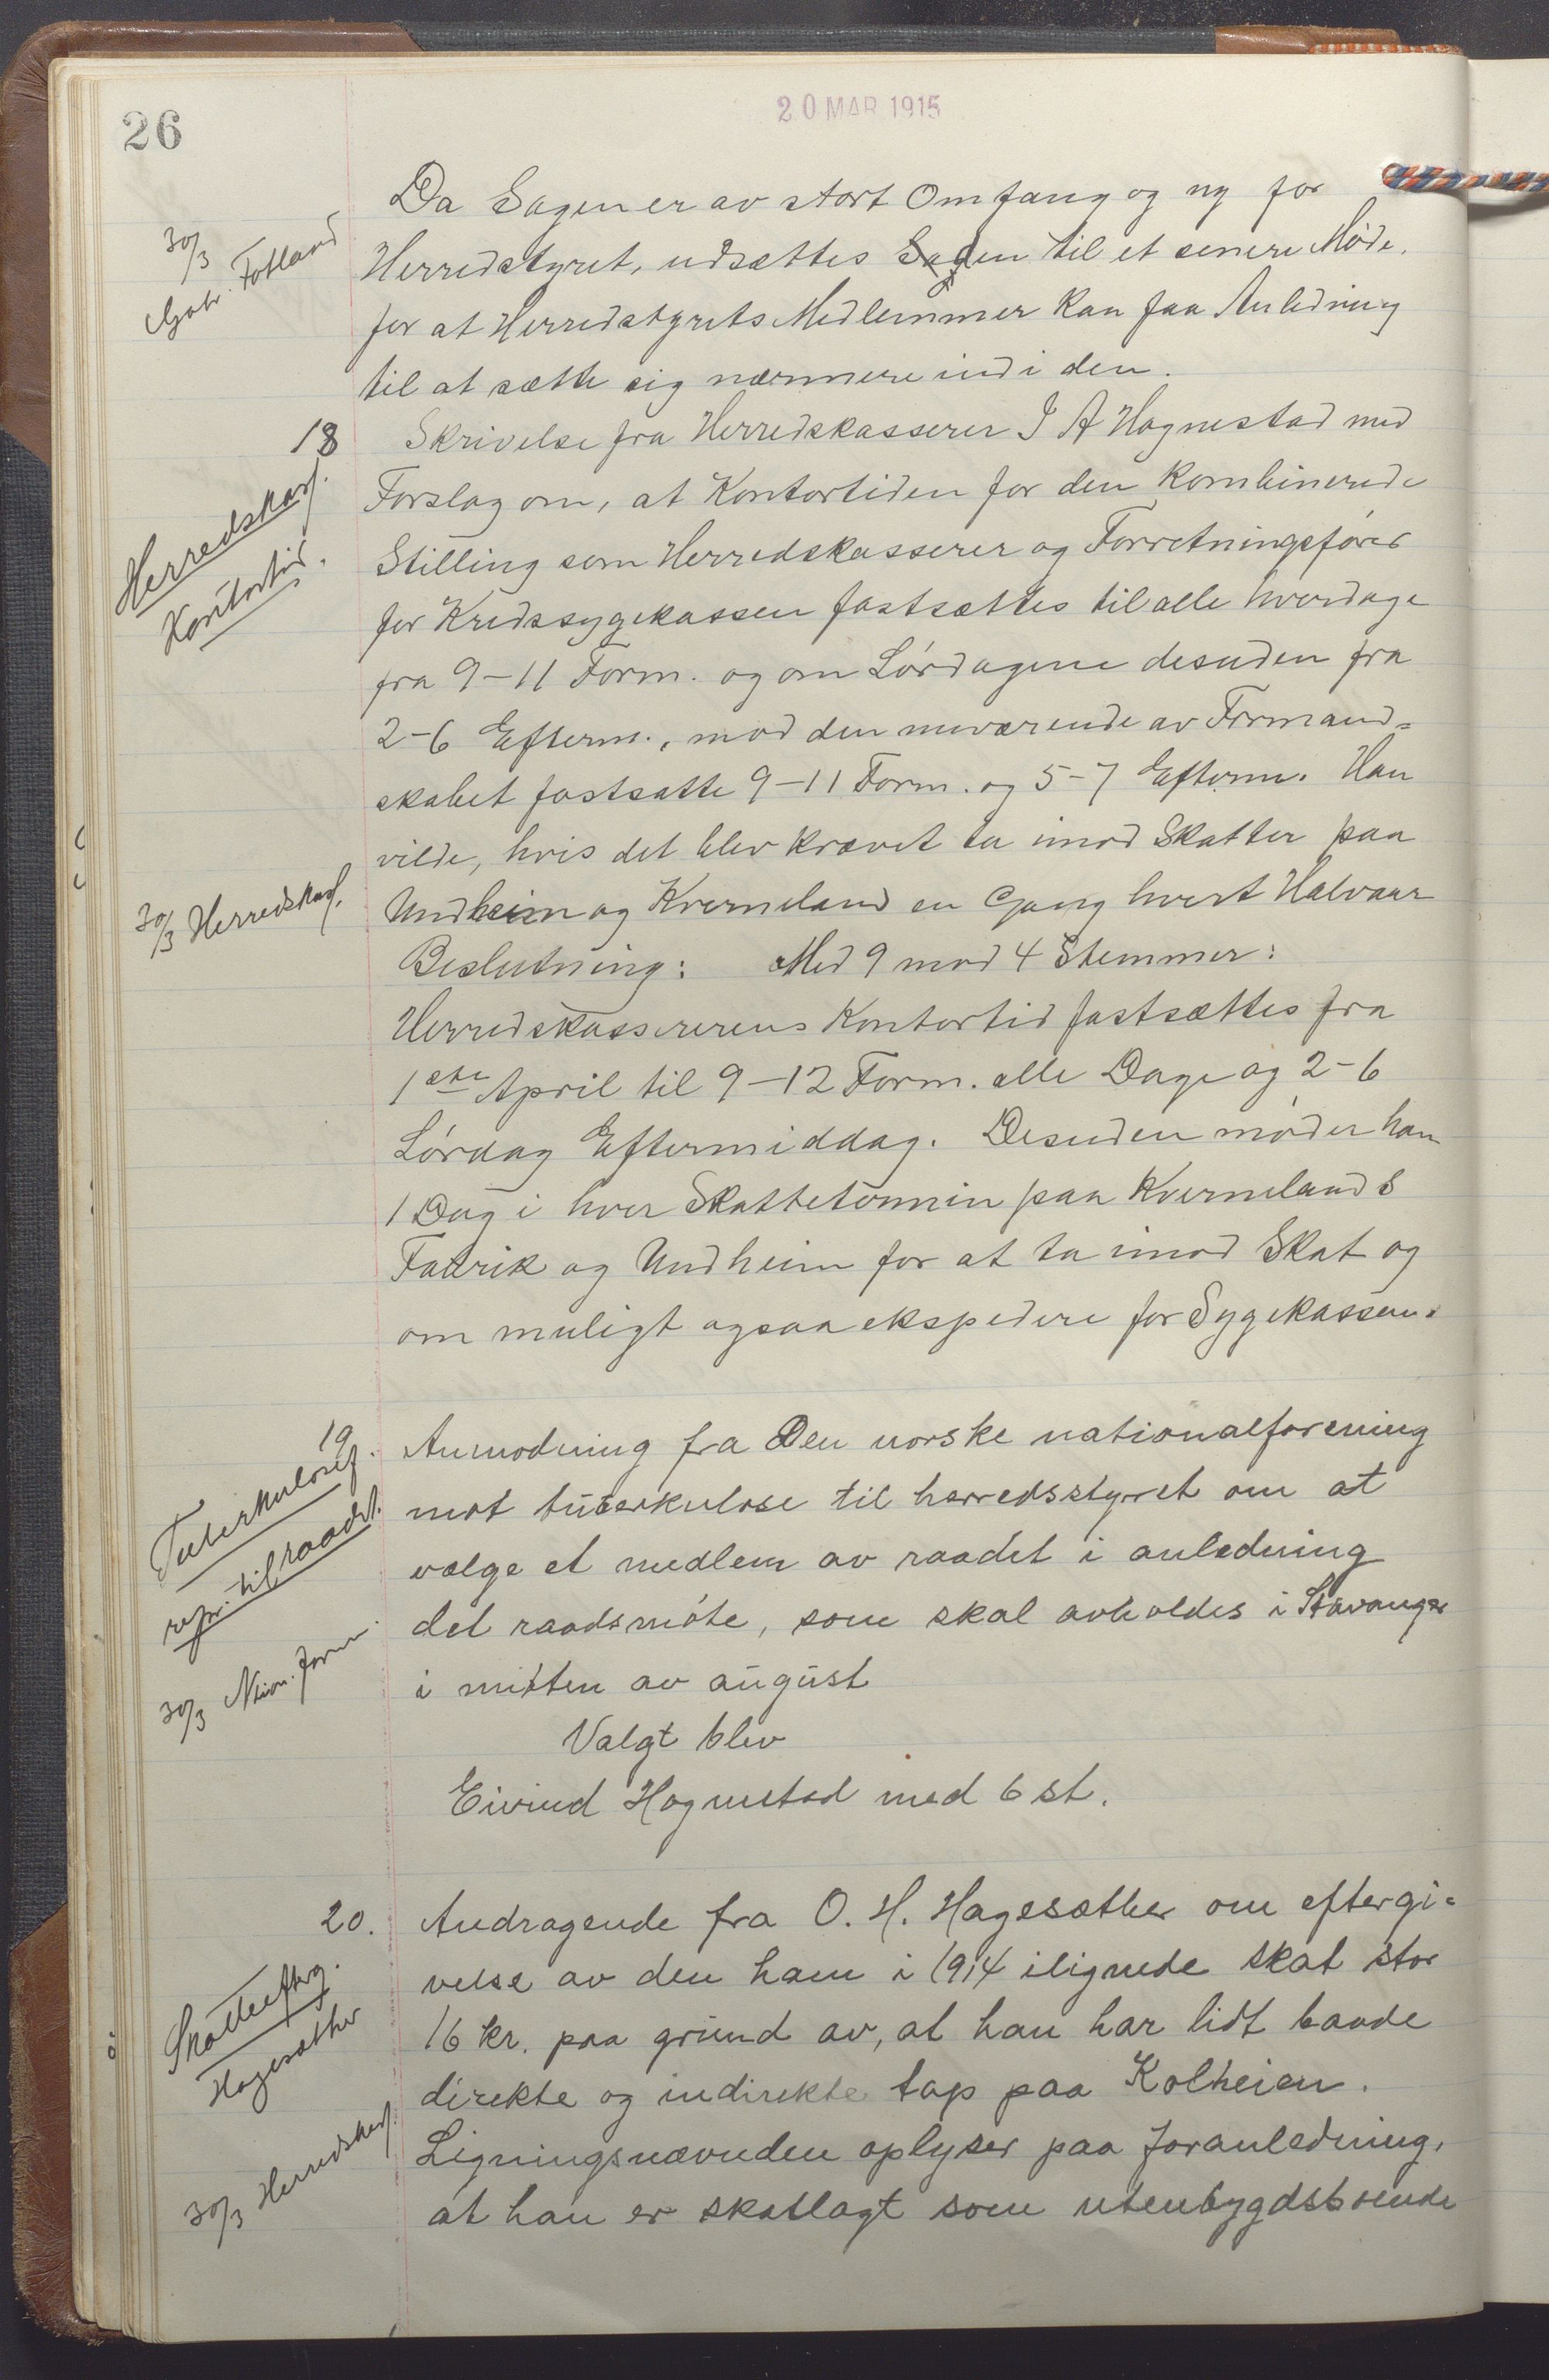 26
20 MAR 1915
Da Sagen er av stort Omfang og ny for
30/3 Gabr. Fotland
Herredstyret, udsættes Sagen til et senere Møde,
for at Herredstyrets Medlemmer kan faa Anledning
til at sætte sig nærmere ind i den.
18
Herredskass.
Kontortid.
Skrivelse fra Herredskasserer I A Hognestad med
Forslag om, at Kontortiden for den kombinerede
Stilling som Herredskasserer og Forretningsfører
for Kredssygekassen fastsættes til alle hverdage
fra 9-11 Form. og om Lørdagene desuden fra
2-6 Efterm., mod den nuværende av Formand-
skabet fastsatte 9-11 Form. og 5-7 Efterm. Han
vilde, hvis det blev krævet ta imod Skatter paa
30/3 Herredskass.
Undheim og Kverneland en Gang hvert Halvaar
Beslutning: Med 9 mod 4 Stemmer:
Herredskassererens Kontortid fastsættes fra
1ste April til 9-12 Form. alle Dage og 2-6
Lørdag Eftermiddag. Desuden møder han
1 Dag i hver Skattetermin paa Kvernelands
Fabrik og Undheim for at ta imod Skat og
om muligt ogsaa ekspedere for Sygekassen.
19.
Tuberkulosef.
repr. til raadst.
30/3 Nion. foren.
Anmodning fra Den norske nationalforening
mot tuberkulose til herredsstyret om at
vælge et medlem av raadet i anledning
det raadsmøte, som skal avholdes i Stavanger
i mitten av august
Valgt blev
Eivind Hognestad med 6 st.
20.
Skatteefterg.
Hagesæther
30/3 Herredskass.
Andragende fra O. H. Hagesæther om eftergi-
velse av den ham i 1914 ilignede skat stor
16 kr. paa grund av, at han har lidt baade
direkte og indirekte tap paa Kolheien.
Ligningsnævnden oplyser paa foranledning,
at han er skatlagt som utenbygdsboende